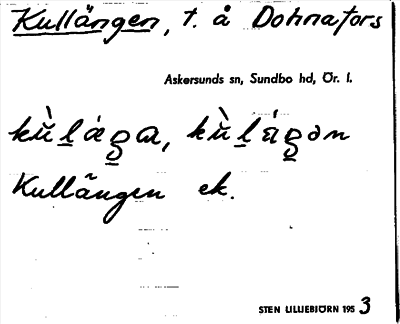 Kullängen, t. å Dohnafors
Askersunds sn, Sundbo hd, Ör. l.
Kullängen ek.
STEN LILLIEBJÖRN 1953